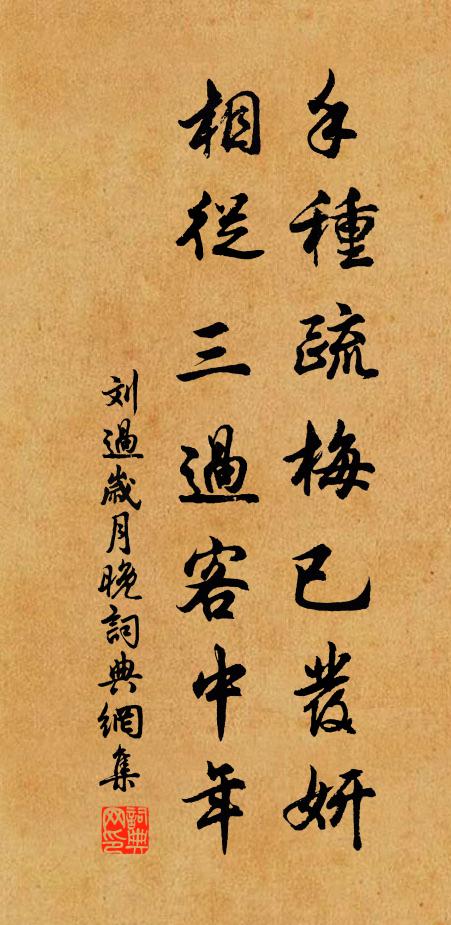 手種疏梅已發妍
相從三過客中年
刘過歲月晚詞典網集
詞典网印